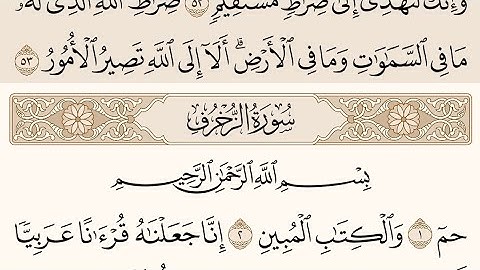 وَإِنَّكَ لَتَهْدِىٓ إِلَىٰ صِرَٰطٍ مُّسْتَقِيمٍ ٥٢ صِرَٰطِ ٱللَّهِ ٱلَّذِى لَهُۥ
مَا فِى ٱلسَّمَٰوَٰتِ وَمَا فِى ٱلْأَرْضِ ۗ أَلَآ إِلَى ٱللَّهِ تَصِيرُ ٱلْأُمُورُ ٥٣
سُورَةُ الزُّخْرُفِ
بِسْمِ ٱللَّهِ ٱلرَّحْمَٰنِ ٱلرَّحِيمِ
حمٓ ١ وَٱلْكِتَٰبِ ٱلْمُبِينِ ٢ إِنَّا جَعَلْنَٰهُ قُرْءَٰنًا عَرَبِيًّا